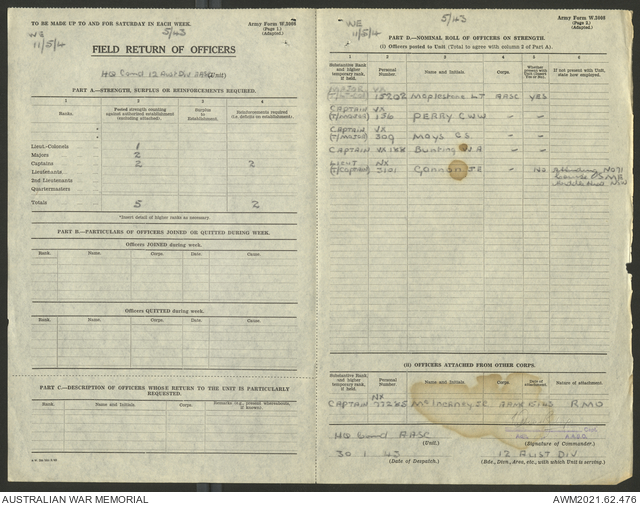 TO BE MADE UP TO AND FOR SATURDAY IN EACH WEEK.
5/43
Army Form W.3008
(Page 1.)
(Adapted.)
WE
11/5/4
FIELD RETURN OF OFFICERS
HQ Comd 12 Aust Div (Unit)
PART A.—STRENGTH, SURPLUS OR REINFORCEMENTS REQUIRED.
1 2 3 4
Ranks. Posted strength counting against authorized establishment (including attached). Surplus to Establishment. Reinforcements required (i.e. deficit on establishment).
Lieut.-Colonels 1
Majors 2
Captains 2 2
Lieutenants
2nd Lieutenants
Quartermasters
Totals 5 2
*Insert detail of higher ranks as necessary.
PART B.—PARTICULARS OF OFFICERS JOINED OR QUITTED DURING WEEK.
Officers JOINED during week.
Rank. Name. Corps. Date. Cause.
Officers QUITTED during week.
Rank. Name. Corps. Date. Cause.
PART C.—DESCRIPTION OF OFFICERS WHOSE RETURN TO THE UNIT IS PARTICULARLY REQUESTED.
Rank. Name and Initials. Corps. Remarks (e.g., present whereabouts, if known).
WE
11/5/4
5/43
Army Form W.3008
(Page 2.)
(Adapted.)
PART D.—NOMINAL ROLL OF OFFICERS ON STRENGTH.
(i) Officers posted to Unit (Total to agree with column 2 of Part A).
1 2 3 4 5 6
Substantive Rank and higher temporary rank, if held. Personal Number. Name and Initials. Corps. Whether present with Unit (Insert Yes or No). If not present with Unit, state how employed.
MAJOR VX
13202 Maplestone LT AASC YES
CAPTAIN VX
(T/MAJOR) 136 PERRY CWW " "
CAPTAIN VX
(T/MAJOR) 309 Mays CS. " "
CAPTAIN VX 188 Bunting WA " "
LIEUT NX
(T/CAPTAIN) 3101 Gannon JE " NO Attending NO71
Course SME
NSW
(ii) OFFICERS ATTACHED FROM OTHER CORPS.
Substantive Rank and higher temporary rank, if held. Personal Number. Name and Initials. Corps. Date of Attachment. Nature of Attachment.
NX
CAPTAIN 77285 McInerney JE AAMC RMO
HQ Comd AASC
(Unit.) (Signature of Commander.)
30 1 43 12 AUST DIV
(Date of Despatch.) (Bde., Divn., Area, etc., with which Unit is serving.)
AUSTRALIAN WAR MEMORIAL
AWM2021.62.476